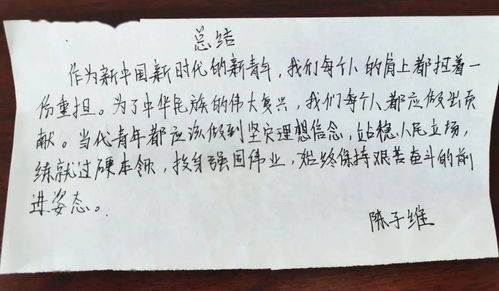 总结
作为新中国新时代的新青年，我们每个人的肩上都担着一
份重担。为了中华民族的伟大复兴，我们每个人都应做出贡
献。当代青年都应该做到坚定理想信念，站稳人民立场，
练就过硬本领，投身强国伟业，始终保持艰苦奋斗的前
进姿态。
陈子维